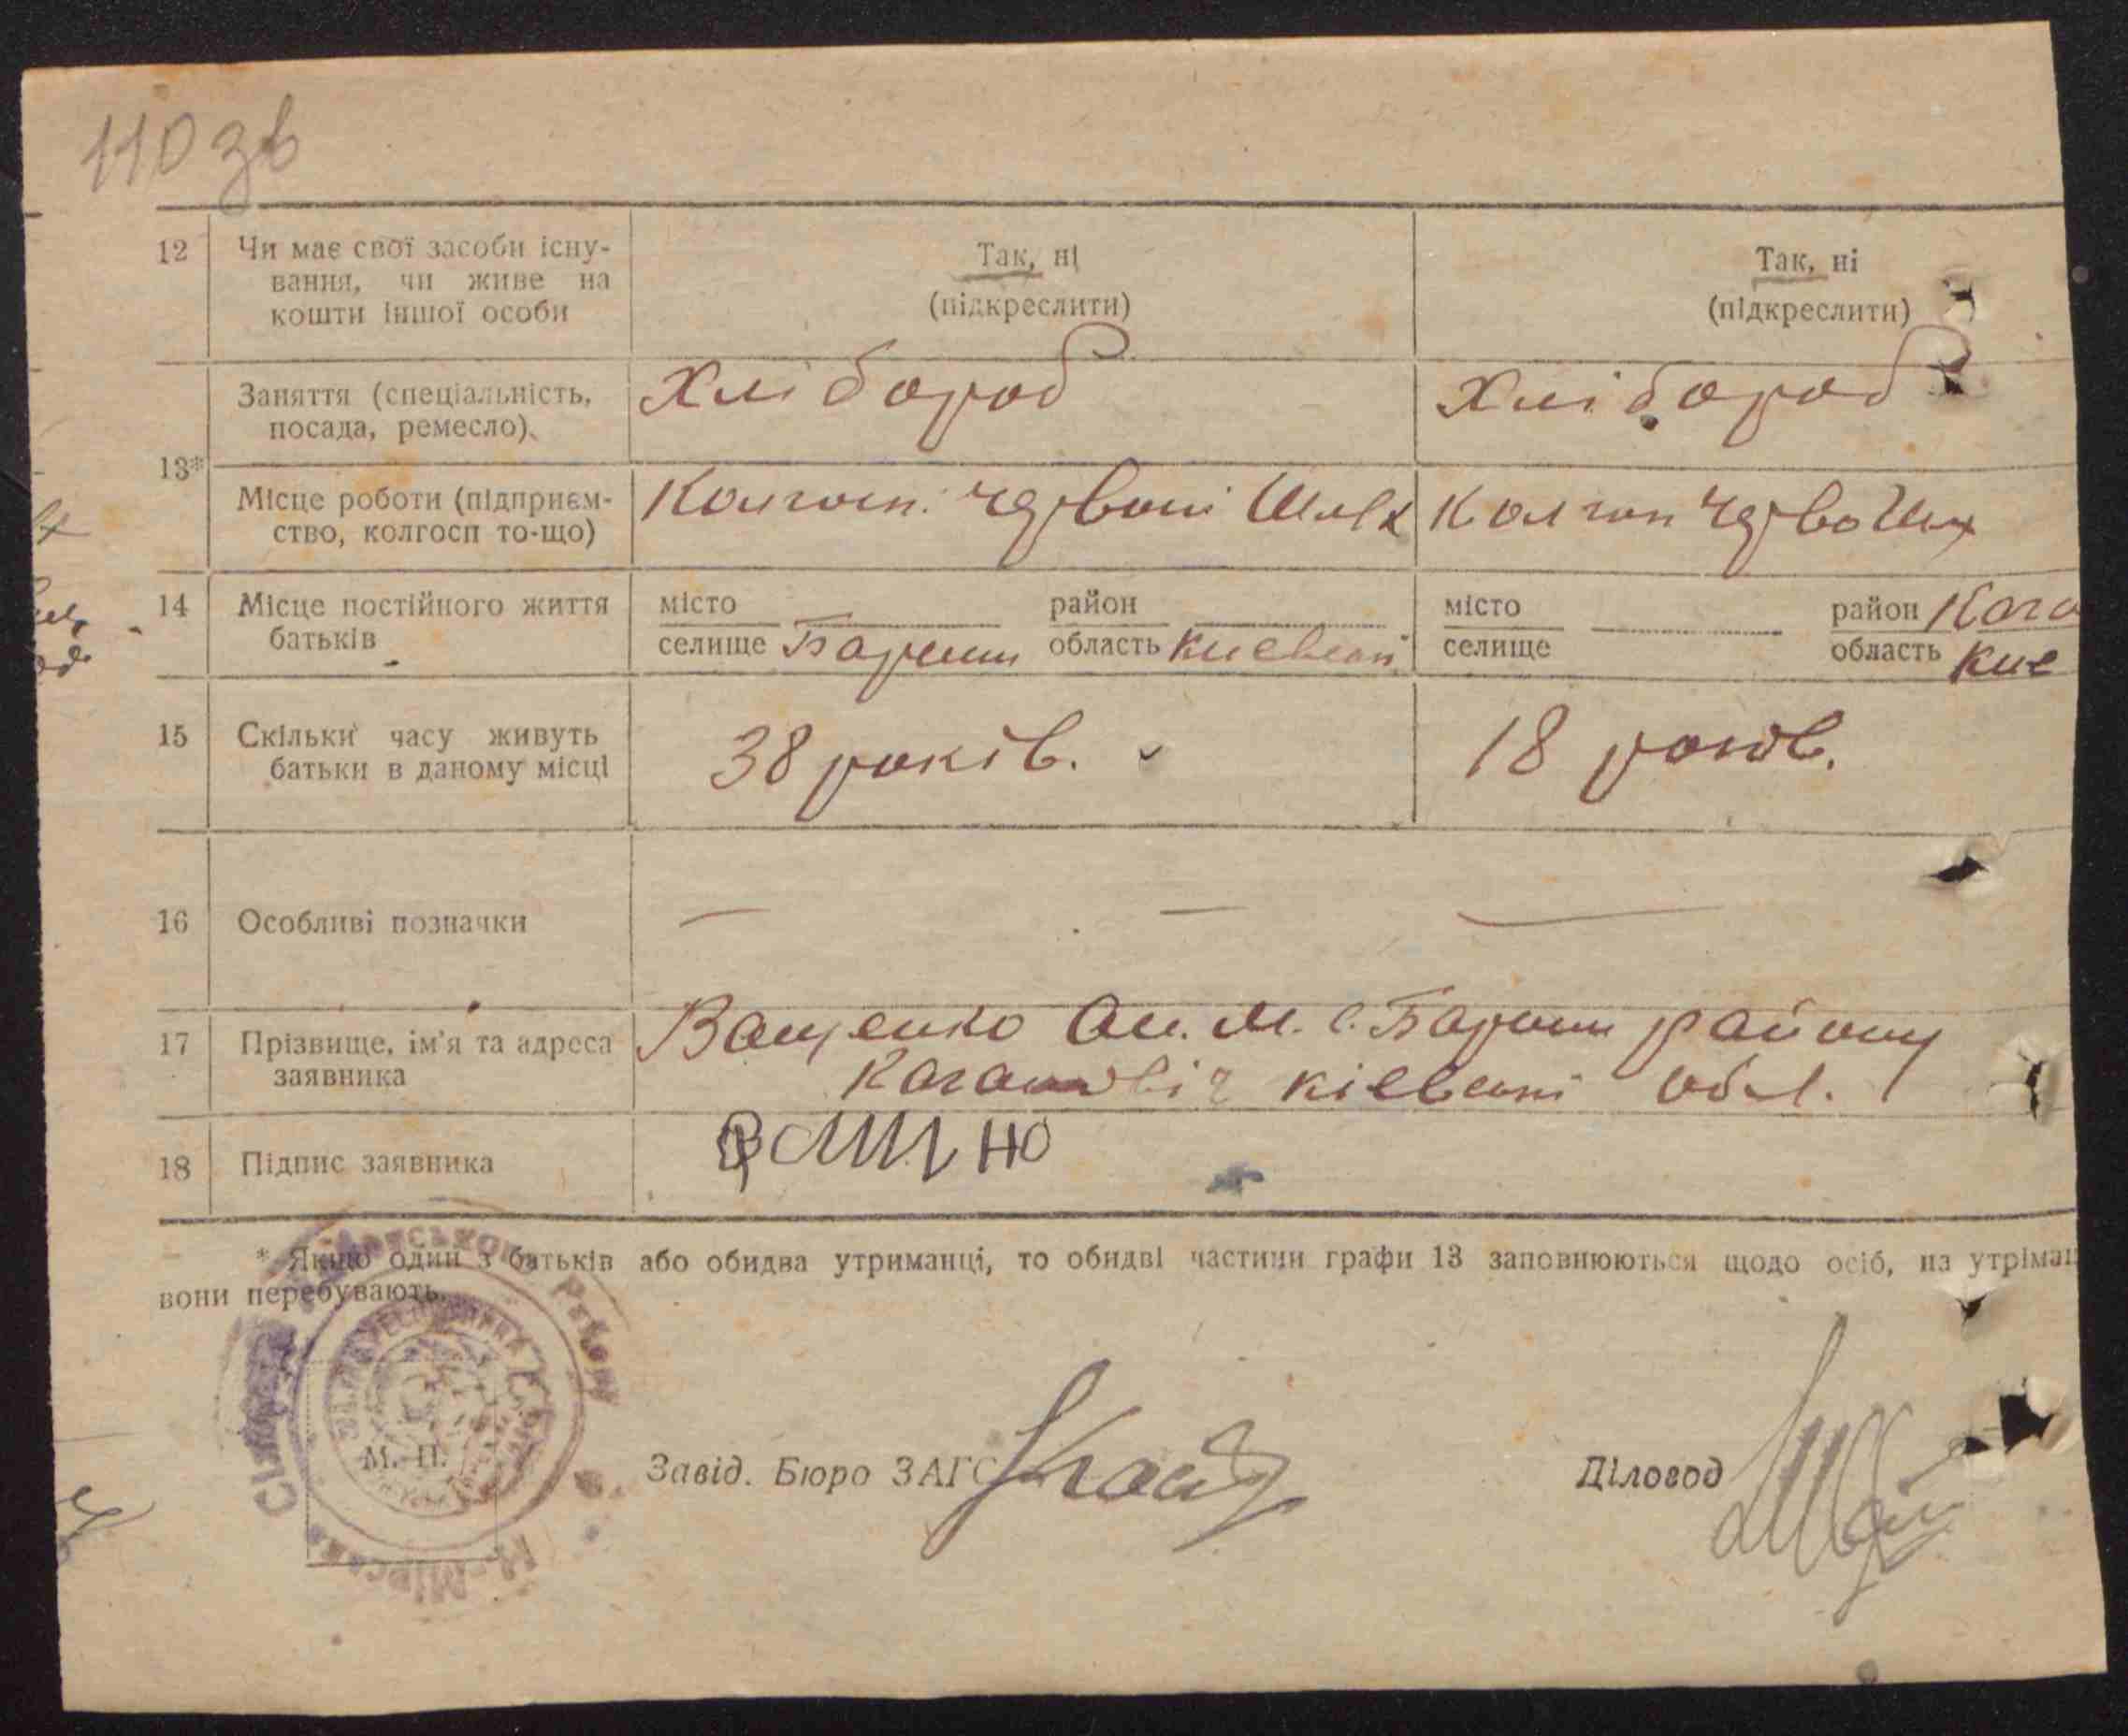 110 зв
12 Чи має свої засоби існу- Так, ні Так, ні
вання, чи живе на (підкреслити) (підкреслити)
кошти іншої особи
Заняття (спеціальність, Хлібороб Хлібороб
посада, ремесло)
13*
Місце роботи (підприєм- Колгосп. Червоні Шлях Колгосп Черво Шлях
ство, колгосп то-що)
14 Місце постійного життя місто район місто район Кага
батьків селище область селище область Киє
15 Скільки часу живуть 38 років. 18 років.
батьки в даному місці
16 Особливі позначки — — —
17 Прізвище, ім'я та адреса Ващенко Ол. М. с. району
заявника Кагановіч кієвскої обл.
18 Підпис заявника
* Якщо один з батьків або обидва утриманці, то обидві частини графи 13 заповнюються щодо осіб, на утріман
вони перебувають.
М. П.
Завід. Бюро ЗАГС Діловод